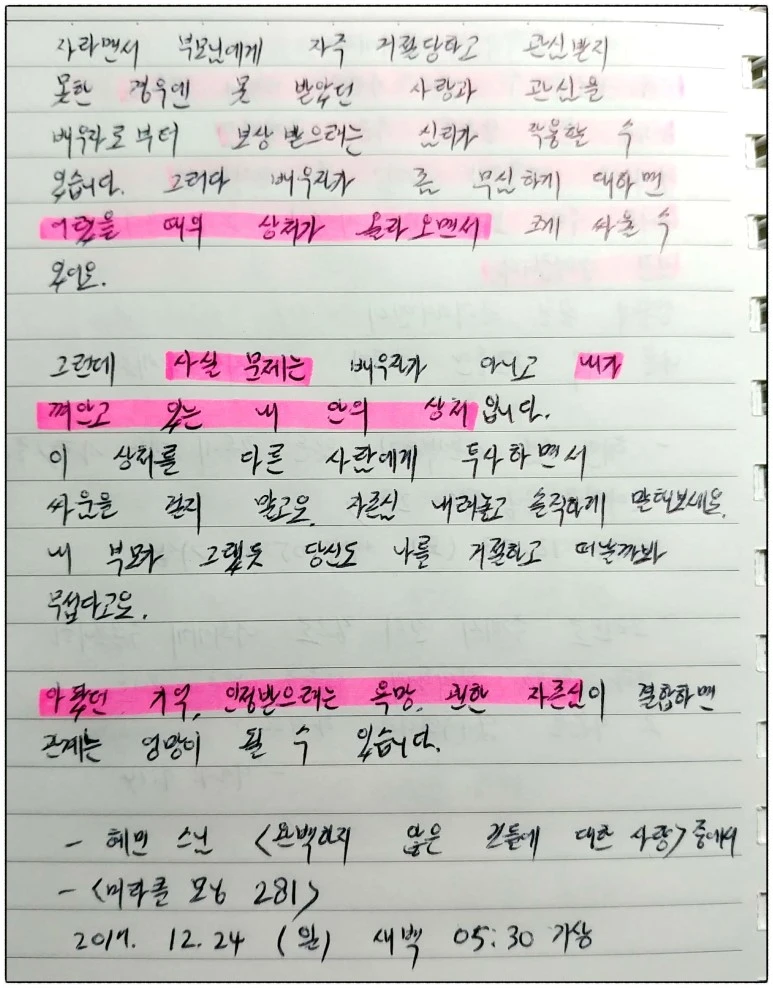 자라면서 부모님에게 자주 거절당하고 관심받지
못한 경우엔 못 받았던 사랑과 관심을
배우자로부터 보상 받으려는 심리가 작용할 수
있습니다. 그러다 배우자가 좀 무심하게 대하면
어렸을 때의 상처가 올라오면서 크게 싸울 수
있어요.
그런데 사실 문제는 배우자가 아니고 내가
껴안고 있는 내 안의 상처입니다.
이 상처를 다른 사람에게 투사하면서
싸움을 걸지 말고요, 자존심 내려놓고 솔직하게 말해보세요.
내 부모가 그랬듯 당신도 나를 거절하고 떠날까봐
무섭다고요.
아팠던 기억, 인정받으려는 욕망, 괜한 자존심이 결합하면
관계는 엉망이 될 수 있습니다.
- 혜민 스님 <완벽하지 않은 것들에 대한 사랑> 중에서
- <미라클 모닝 281>
12.24 새벽 05:30 기상